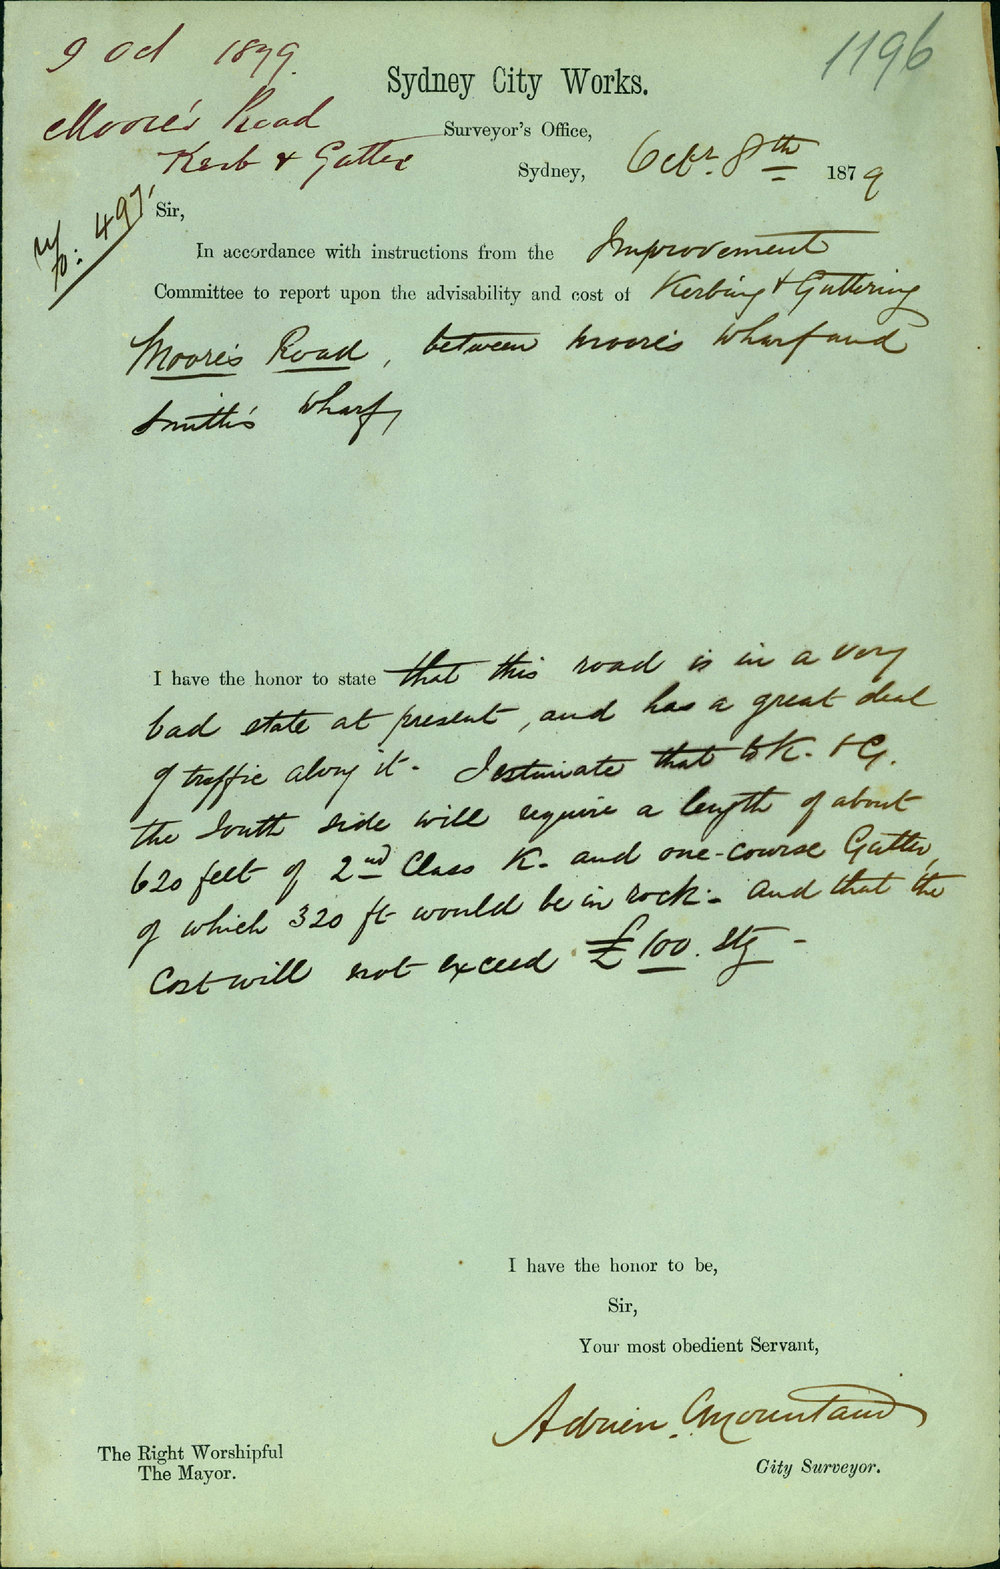 9 Oct 1879.
1196
Moore's Road
Kerb & Gutter
Sydney City Works.
Surveyor's Office,
Sydney, Octr. 8th 1879
No: 497.
Sir,
In accordance with instructions from the Improvement
Committee to report upon the advisability and cost of Kerbing & Guttering
Moore's Road, between Moore's Wharf and
Smith's Wharf,
I have the honor to state that this road is in a very
bad state at present, and has a great deal
of traffic along it. I estimate that to K. & G.
the South side will require a length of about
620 feet of 2nd Class K. and one-course Gutter,
of which 320 ft would be in rock. - and that the
Cost will not exceed £100. stg -
I have the honor to be,
Sir,
Your most obedient Servant,
Adrien C. Mountain
City Surveyor.
The Right Worshipful
The Mayor.